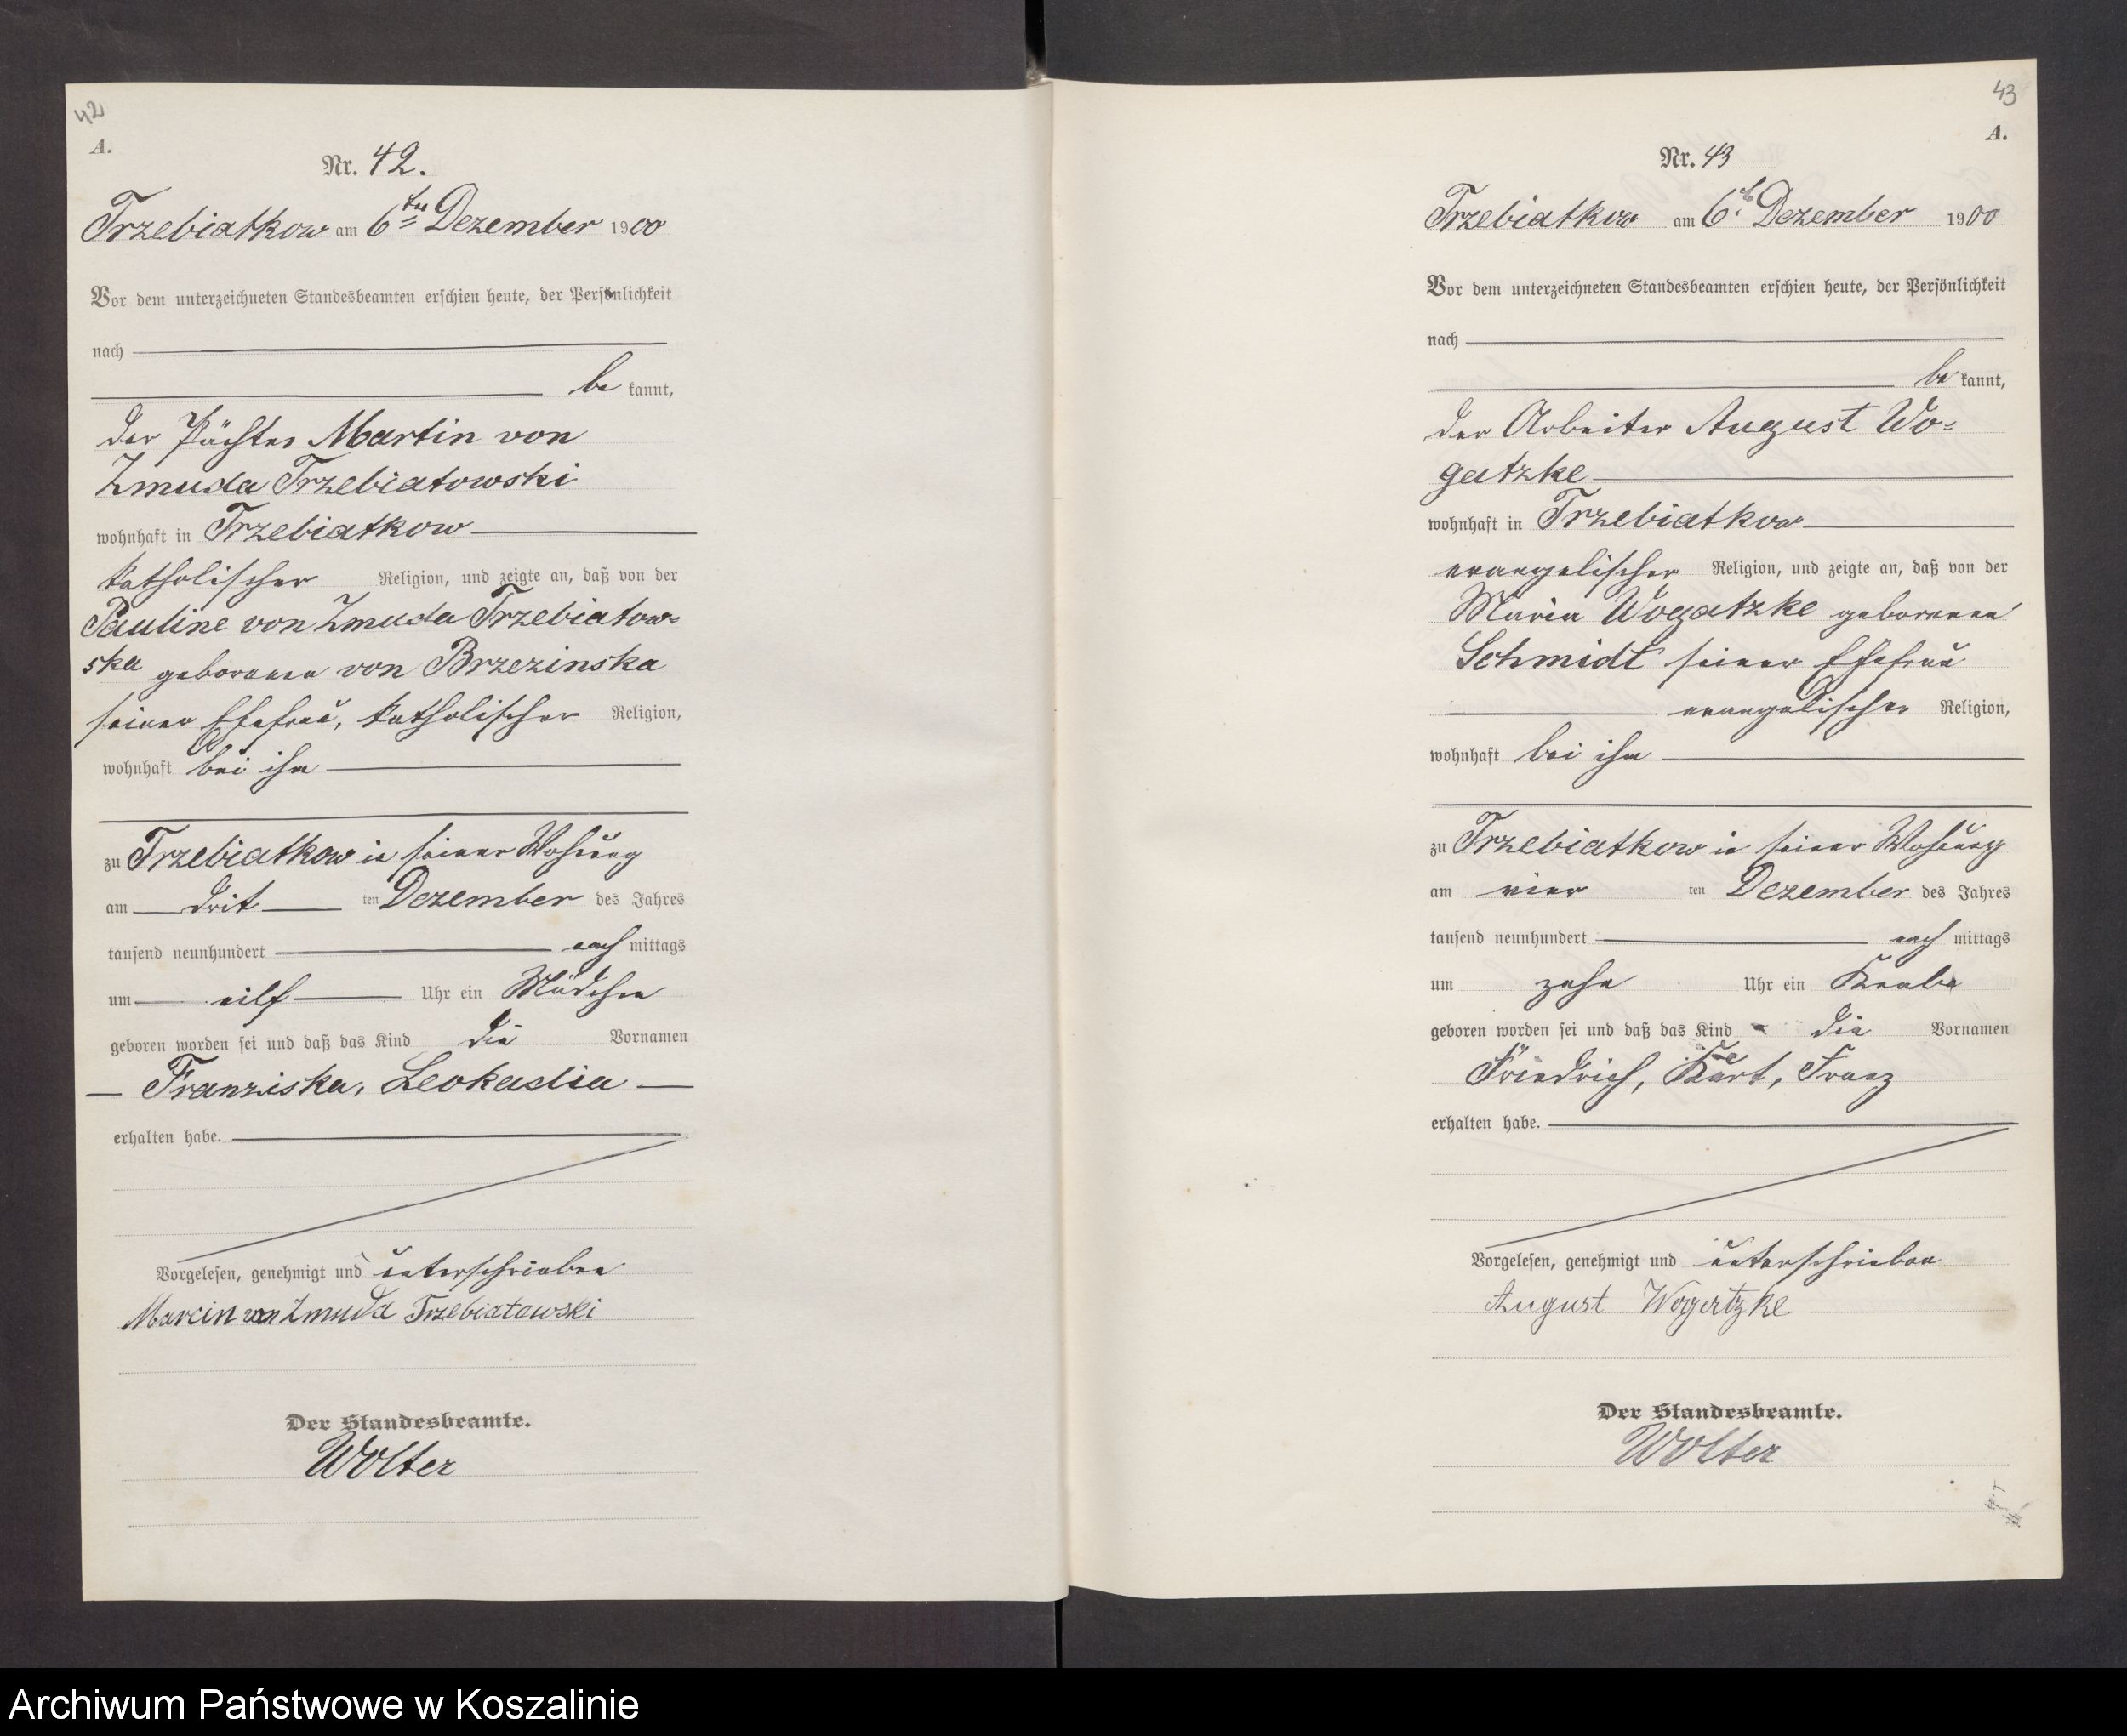 42
A.
Nr. 42.
Trzebiatkow am 6ten Dezember 1900
Vor dem unterzeichneten Standesbeamten erschien heute, der Persönlichkeit
nach
be kannt,
der Pächter Martin von
Zmuda Trzebiatowski
wohnhaft in Trzebiatkow
katholischer Religion, und zeigte an, daß von der
Pauline von Zmuda Trzebiatow-
ska geborenen von Brzezinska
seiner Ehefrau, katholischer Religion,
wohnhaft bei ihm
zu Trzebiatkow in seiner Wohnung
am drit ten Dezember des Jahres
tausend neunhundert nach mittags
um eilf Uhr ein Mädchen
geboren worden sei und daß das Kind die Vornamen
Franziska, Leokadia
erhalten habe.
Vorgelesen, genehmigt und unterschrieben
Marcin von Zmuda Trzebiatowski
Der Standesbeamte.
Wolter
43
A.
Nr. 43
Trzebiatkow am 6t Dezember 1900
Vor dem unterzeichneten Standesbeamten erschien heute, der Persönlichkeit
nach
be kannt,
der Arbeiter August Wo=
gatzke
wohnhaft in Trzebiatkow
evangelischer Religion, und zeigte an, daß von der
Maria Wogatzke geborenen
Schmidt seiner Ehefrau
evangelischer Religion,
wohnhaft bei ihm
zu Trzebiatkow in seiner Wohnung
am vier ten Dezember des Jahres
tausend neunhundert nach mittags
um zehn Uhr ein Knabe
geboren worden sei und daß das Kind die Vornamen
Friedrich, Kurt, Franz
erhalten habe.
Vorgelesen, genehmigt und unterschrieben
August Wogatzke
Der Standesbeamte.
Wolter
Archiwum Państwowe w Koszalinie